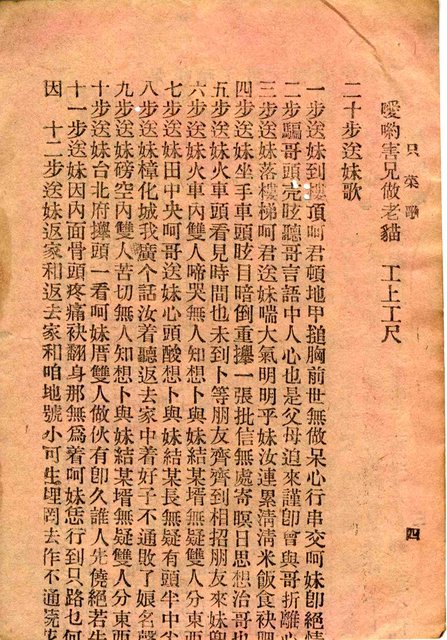 只菜歌
噯喲害兄做老貓　工上工尺
二十步送妹歌
一步送妹到樓頂呵君頓地甲搥胸前世無做呆心行串交呵妹卽絕情
二步騙哥頭壳眩聽哥言語中人心也是父母迫來謹卽會與哥折離
三步送妹落樓梯呵君送妹喘大氣明明乎妹汝連累清清米飯食袂
四步送妹坐手車頭眩目暗倒重攑一張批信無處寄暝日思想治哥也
五步送妹火車頭看見時間也未到卜等朋友齊齊到相招朋友來妹
六步送妹火車內雙人啼哭無人知想卜與妹結某壻無疑雙人分東西
七步送妹田中央呵哥送妹心頭酸想卜與妹結某長無疑有頭半中
八步送妹樟化城我廣个話汝着聽返去家中着好子不通敗了娘名聲
九步送妹磅空內雙人苦切無人知想卜與妹結某壻無疑雙人分東西
十步送妹台北府攑頭一看呵妹厝雙人做伙有卽久誰人先僥絕若
十一步送妹因內面骨頭疼痛袂翻身那無爲着呵妹恁行到只路乜何
因　十二步送妹返家和返去家和咱地號小可生理罔去作不通僥
四